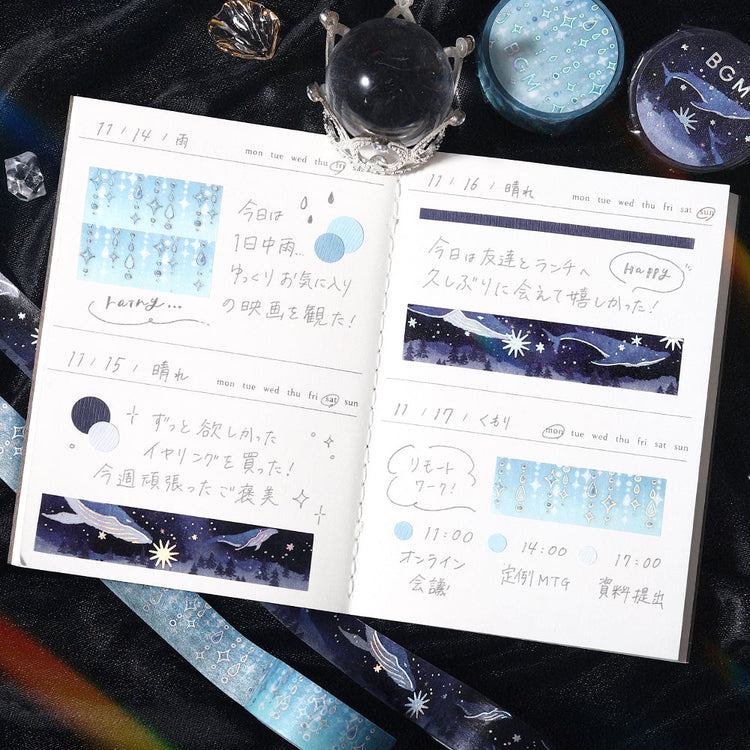 BGM
BGM
11 / 14 / 雨
mon tue wed thu fri
今日は
1日中雨...
ゆっくりお気に入り
の映画を観た!
rainy...
11 / 15 / 晴れ
mon tue wed thu fri sat sun
ずっと欲しかった
イヤリングを買った!
今週頑張ったご褒美
11 / 16 / 晴れ
mon tue wed thu fri sat sun
今日は友達とランチへ
久しぶりに会えて嬉しかった!
Happy
11 / 17 / くもり
mon tue wed thu fri sat sun
リモート
ワーク!
11:00
オンライン
会議
14:00
定例MTG
17:00
資料提出